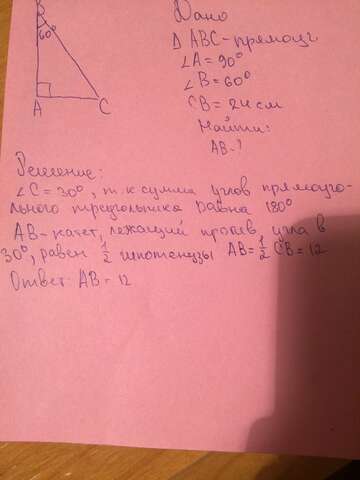 B
60°
A
C
Дано
Δ ABC - прямоуг
∠A = 90°
∠B = 60°
CB = 24 см
Найти:
AB - ?
Решение:
∠C = 30°, т.к сумма углов прямоуго-
льного треугольника равна 180°
AB - катет, лежащий против угла в
30°, равен 1/2 гипотенузы AB = 1/2 CB = 12
Ответ: AB = 12